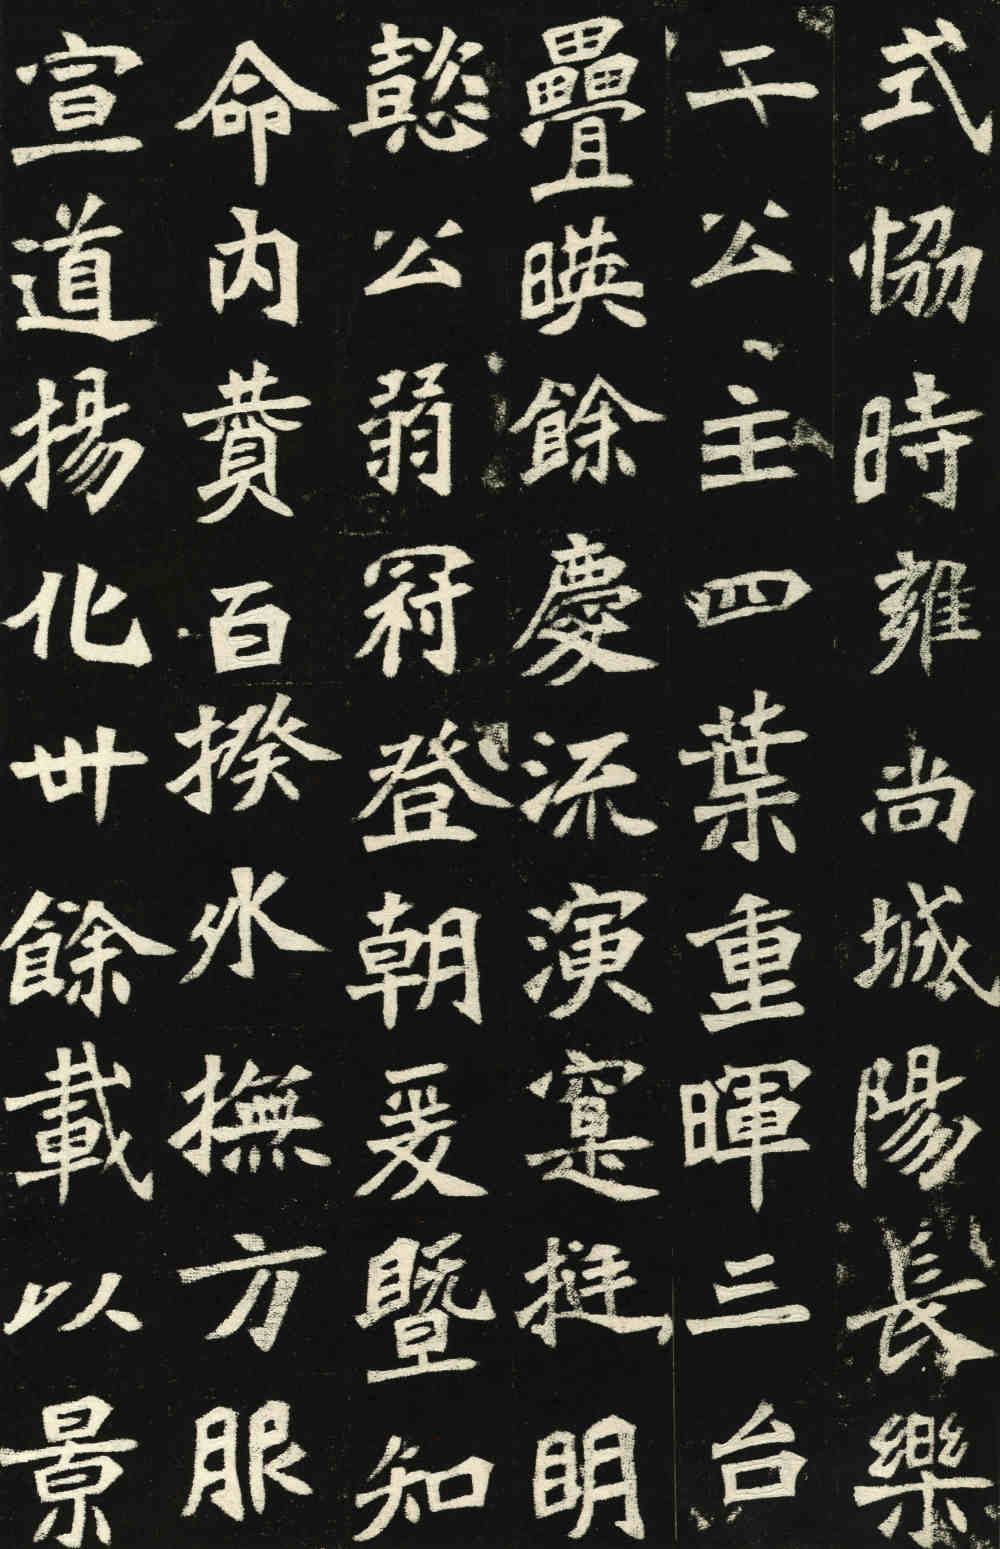 式協時雍尚城陽長樂
千公主四葉重暉三台
疊暎餘慶流演寔挺明
懿公弱冠登朝爰暨知
命內賛百揆外撫方服
宣道揚化卅餘載以景